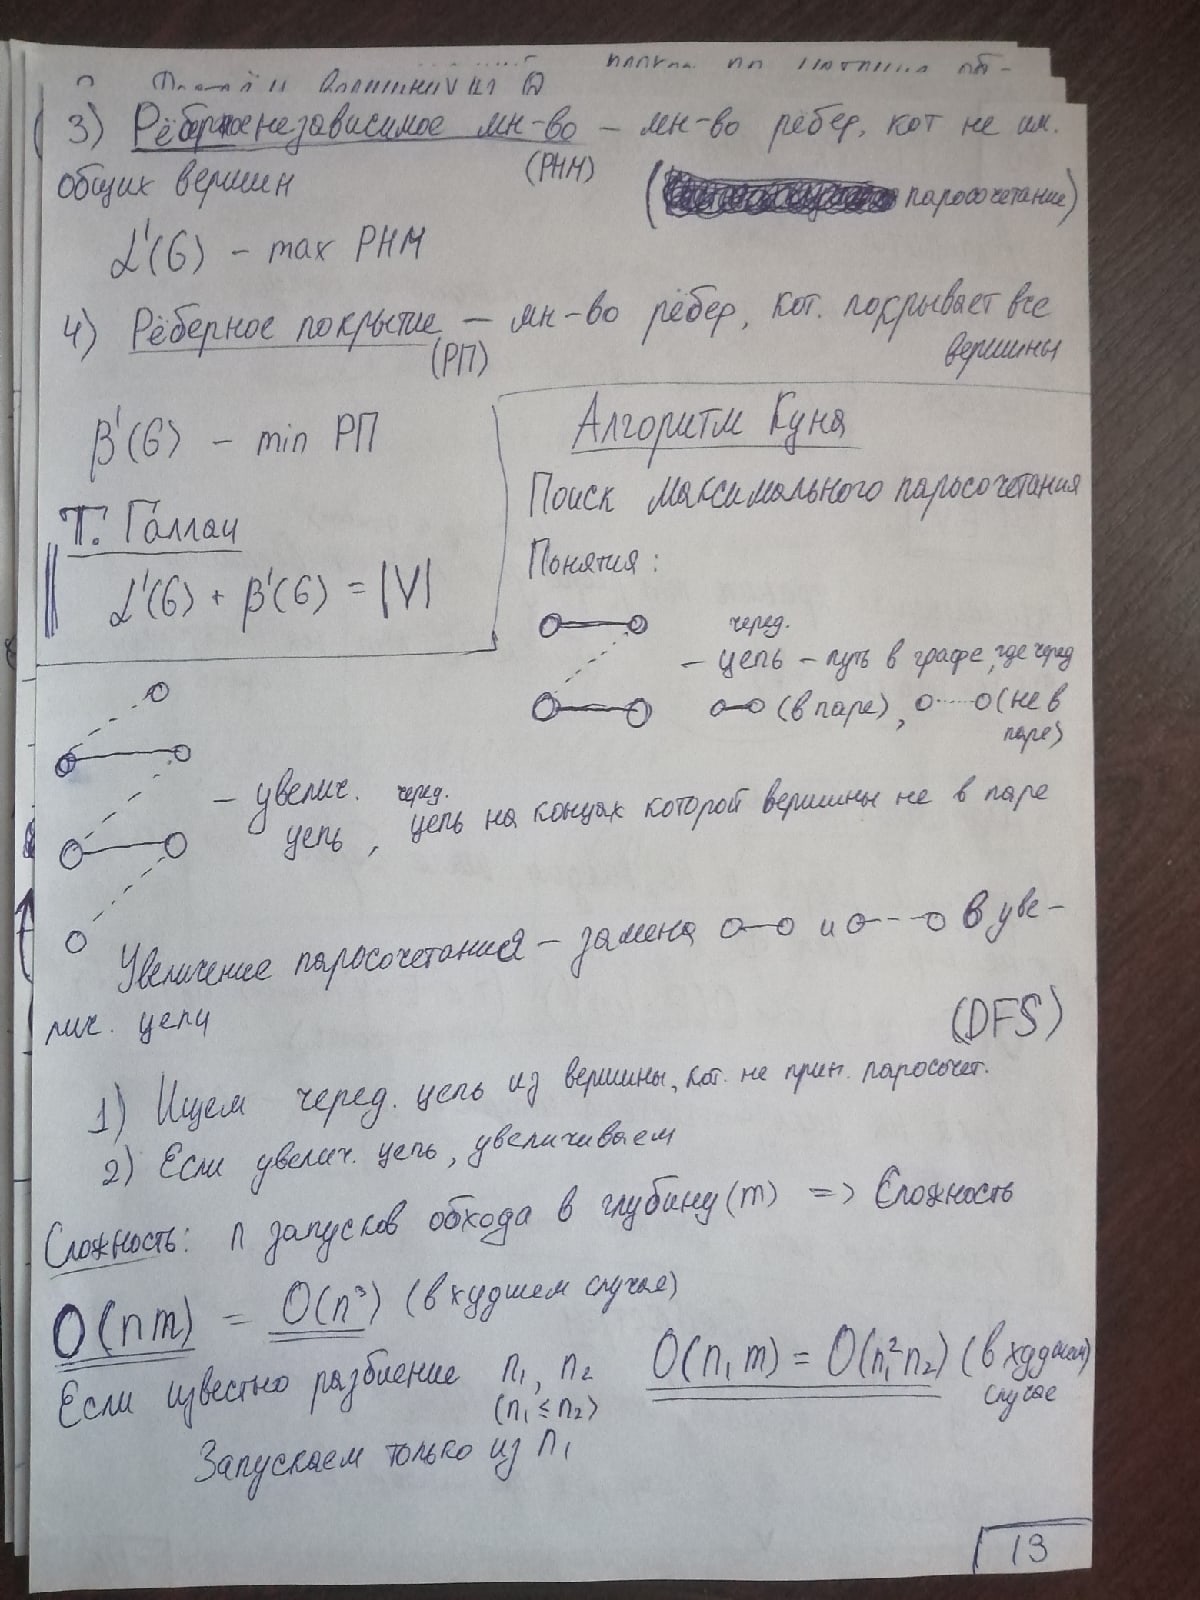 3) Рёберное независимое мн-во – мн-во рёбер, кот не им.
(РНМ)
общих вершин
( паросочетание)
α'(G) – max РНМ
4) Рёберное покрытие – мн-во рёбер, кот. покрывает все
(РП)
вершины
β'(G) – min РП
Т. Галлаи
α'(G) + β'(G) = |V|
Алгоритм Куна
Поиск максимального паросочетания
Понятия:
черед.
– цепь – путь в графе, где черед
(в паре), (не в
паре)
– увелич. черед.
цепь, цепь на концах которой вершины не в паре
Увеличение паросочетания – замена и в уве-
лич. цепи
(DFS)
1) Ищем черед. цепь из вершины, кот. не прин. паросочет.
2) Если увелич. цепь, увеличиваем
Сложность: n запусков обхода в глубину (m) => Сложность
O(nm) = O(n³) (в худшем случае)
Если известно разбиение n₁, n₂
(n₁ ≤ n₂)
O(n₁m) = O(n₁²n₂) (в худшем)
случае
Запускаем только из n₁
13